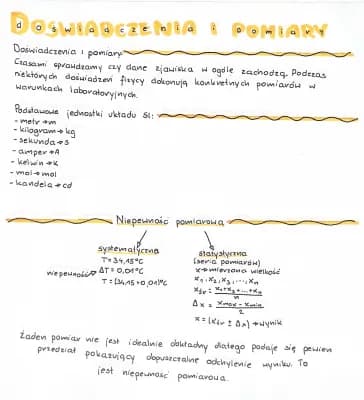 DOŚWIADCZENIA I POMIARY
Doświadczenia i pomiary
Czasami sprawdzamy czy dane zjawiska w ogóle zachodzą. Podczas
niektórych doświadczeń fizycy dokonują konkretnych pomiarów w
warunkach laboratoryjnych.
Podstawowe jednostki układu SI:
- metr → m
- kilogram → kg
- sekunda → s
- amper → A
- kelwin → K
- mol → mol
- kandela → cd
Niepewność pomiarowa
systematyczna
T = 34,15°C
niepewność → ΔT = 0,01°C
T = (34,15 ± 0,01)°C
statystyczna
(seria pomiarów)
x → mierzona wielkość
x₁, x₂, x₃, ..., xₙ
xśr = x₁+x₂+...+xₙ / n
Δx = xmax - xmin / 2
x = (xśr ± Δx) → wynik
Żaden pomiar nie jest idealnie dokładny dlatego podaje się pewien
przedział pokazujący dopuszczalne odchylenie wyniku. To
jest niepewność pomiarowa.